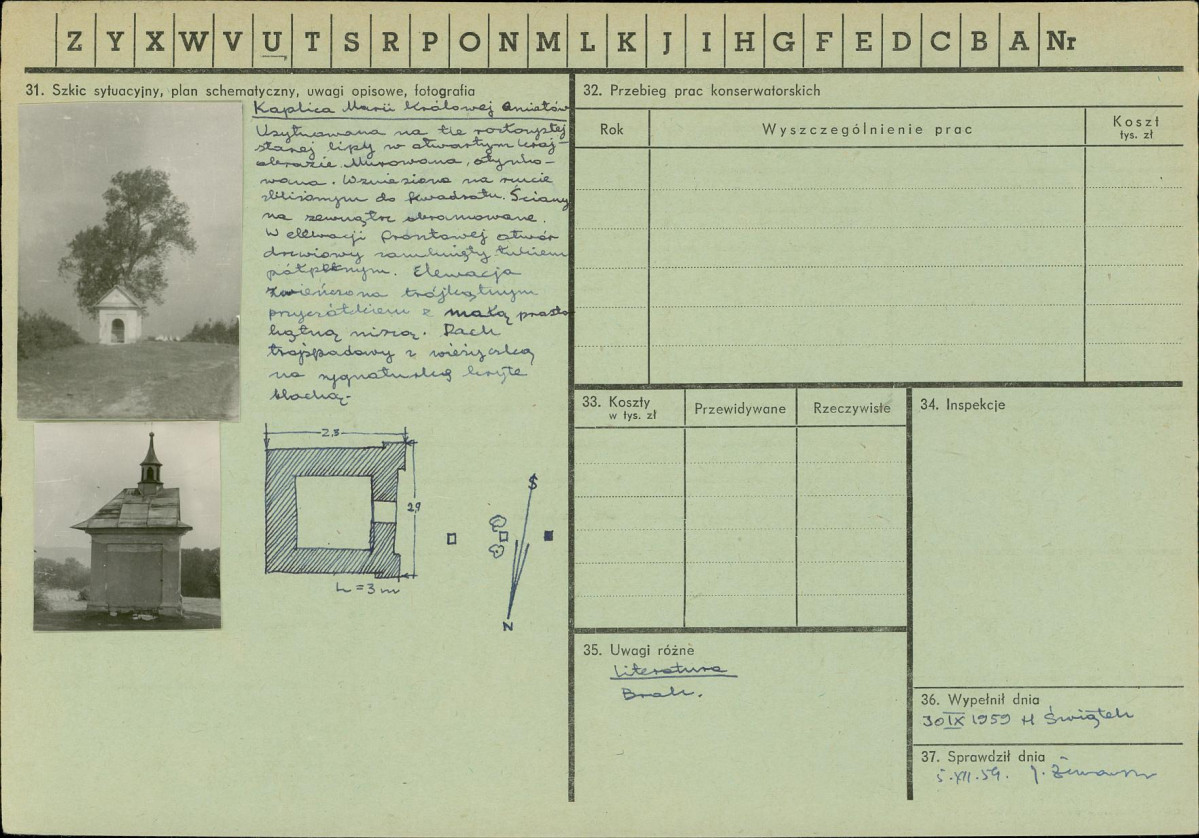 Z Y X W V U T S R P O N M L K J I H G F E D C B A Nr
31. Szkic sytuacyjny, plan schematyczny, uwagi opisowe, fotografia
Kaplica Marii Królowej Aniołów
Usytuowana na tle rozłożystej
starej lipy w otwartym kraj-
obrazie. Murowana, otynko-
wana. Wzniesiona na rzucie
zbliżonym do kwadratu. Ściany
na zewnątrz obramowane.
W elewacji frontowej otwór
drzwiowy zamknięty łukiem
półpełnym. Elewacja
zwieńczona trójkątnym
przyczółkiem z małą prosto
kątną niszą. Dach
trójspadowy z wieżyczką
na sygnaturkę kryte
blachą.
2,3
2,9
h = 3 m
S
N
32. Przebieg prac konserwatorskich
Rok
Wyszczególnienie prac
Koszt
tys. zł
33. Koszty
w tys. zł
Przewidywane
Rzeczywiste
34. Inspekcje
35. Uwagi różne
Literatura
Brak.
36. Wypełnił dnia
30 IX 1959 H Świątek
37. Sprawdził dnia
5.XII.59. J.